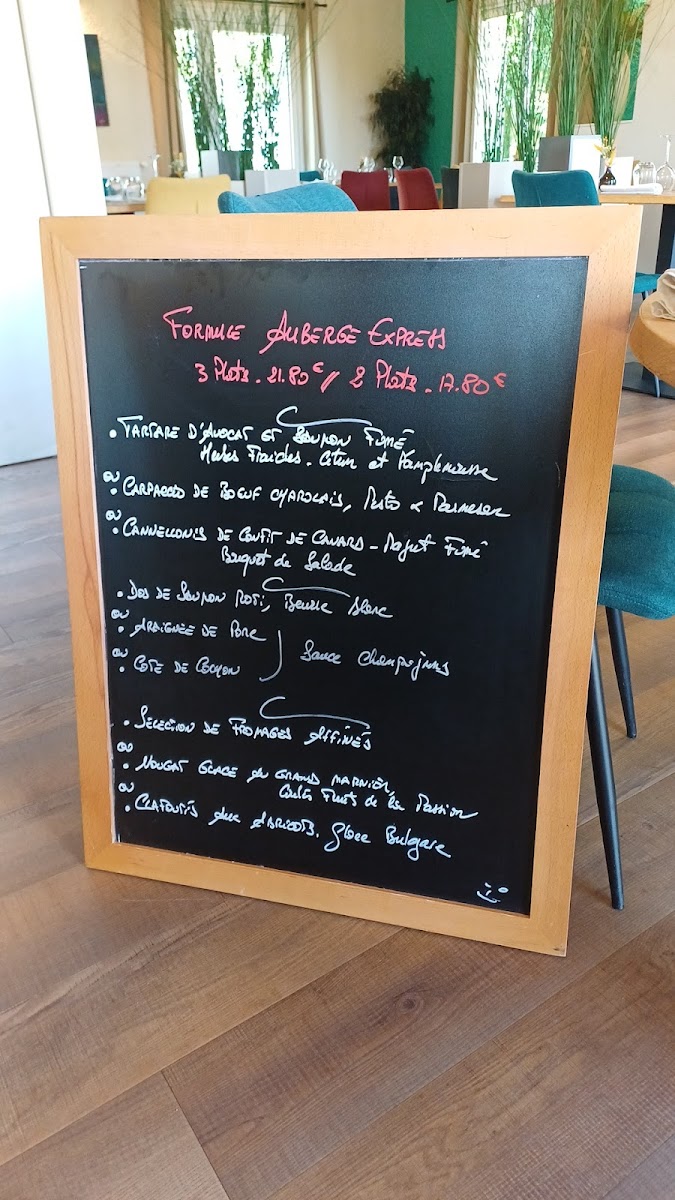 Formule Auberge Express
3 Plats - 21.80€ // 2 Plats - 17.80€
• Tartare d'Avocat et Saumon Fumé
Herbes Fraîches - Citron et Pamplemousse
ou
• Carpaccio de Boeuf Charolais, Pesto & Parmesan
ou
• Cannellonis de Confit de Canard - Magret Fumé
Bouquet de Salade
• Dos de Saumon Roti, Beurre Blanc
ou
• Araignée de Porc
ou
• Cote de Cochon
Sauce Champignons
• Selection de Fromages Affinés
ou
• Nougat Glacé au Grand Marnier,
Coulis Fruits de la Passion
ou
• Clafoutis aux Abricots. Glace Bulgare